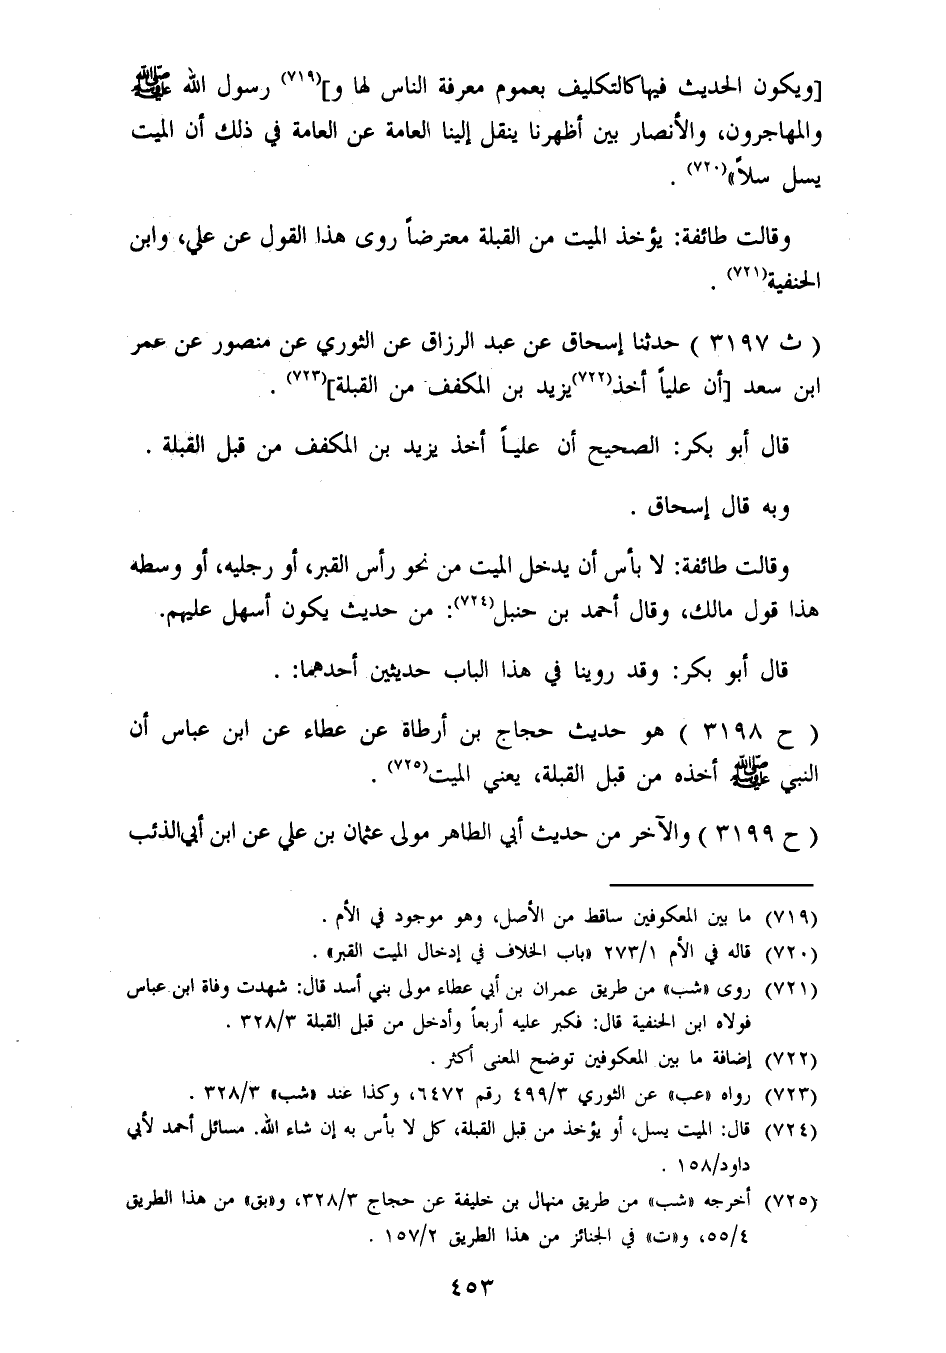 [ويكون الحديث فيها كالتكليف بعموم معرفة الناس لها و](٧١٩) رسول الله ﷺ
والمهاجرون، والأنصار بين أظهرنا ينقل إلينا العامة عن العامة في ذلك أن الميت
يسل سلاً»(٧٢٠) .
وقالت طائفة: يؤخذ الميت من القبلة معترضاً روى هذا القول عن علي، وابن
الحنفية(٧٢١) .
( ث ٣١٩٧ ) حدثنا إسحاق عن عبد الرزاق عن الثوري عن منصور عن عمر
ابن سعد [أن علياً أخذ(٧٢٢)يزيد بن المكفف من القبلة](٧٢٣) .
قال أبو بكر: الصحيح أن علياً أخذ يزيد بن المكفف من قبل القبلة .
وبه قال إسحاق .
وقالت طائفة: لا بأس أن يدخل الميت من نحو رأس القبر، أو رجليه، أو وسطه
هذا قول مالك، وقال أحمد بن حنبل(٧٢٤): من حديث يكون أسهل عليهم.
قال أبو بكر: وقد روينا في هذا الباب حديثين أحدهما: .
( ح ٣١٩٨ ) هو حديث حجاج بن أرطاة عن عطاء عن ابن عباس أن
النبي ﷺ أخذه من قبل القبلة، يعني الميت(٧٢٥) .
( ح ٣١٩٩ ) والآخر من حديث أبي الطاهر مولى عثمان بن علي عن ابن أبي الذئب
(٧١٩) ما بين المعكوفين ساقط من الأصل، وهو موجود في الأم .
(٧٢٠) قاله في الأم ٢٧٣/١ «باب الخلاف في إدخال الميت القبر» .
(٧٢١) روى «شب» من طريق عمران بن أبي عطاء مولى بني أسد قال: شهدت وفاة ابن عباس
فولاه ابن الحنفية قال: فكبر عليه أربعاً وأدخل من قبل القبلة ٣٢٨/٣ .
(٧٢٢) إضافة ما بين المعكوفين توضح المعنى أكثر .
(٧٢٣) رواه «عب» عن الثوري ٤٩٩/٣ رقم ٦٤٧٢، وكذا عند «شب» ٣٢٨/٣ .
(٧٢٤) قال: الميت يسل، أو يؤخذ من قبل القبلة، كل لا بأس به إن شاء الله. مسائل أحمد لأبي
داود/١٥٨ .
(٧٢٥) أخرجه «شب» من طريق منهال بن خليفة عن حجاج ٣٢٨/٣، و«بق» من هذا الطريق
٥٥/٤، و«ت» في الجنائز من هذا الطريق ١٥٧/٢ .
٤٥٣